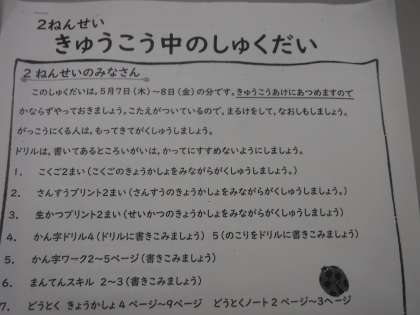 2ねんせい
きゅうこう中のしゅくだい
2 ねんせいのみなさん
このしゅくだいは、5月7日(木)~8日(金)の分です。きゅうこうあけにあつめますので
かならずやっておきましょう。こたえがついているので、まるけをして、なおしもしましょう。
がっこうにくる人は、もってきてがくしゅうしましょう。
ドリルは、書いてあるところいがいは、かってにすすめないようにしましょう。
1. こくご2まい(こくごのきょうかしょをみながらがくしゅうしましょう。)
2. さんすうプリント2まい(さんすうのきょうかしょをみながらがくしゅうしましょう。)
3. 生かつプリント2まい(せいかつのきょうかしょをみながらがくしゅうしましょう)
4. かん字ドリル4(ドリルに書きこみましょう) 5(のこりをドリルに書きこみましょう)
5. かん字ワーク2~5ページ(書きこみましょう)
6. まんてんスキル 2~3(書きこみましょう)
7. どうとく きょうかしょ4ページ~9ページ どうとくノート2ページ~3ページ